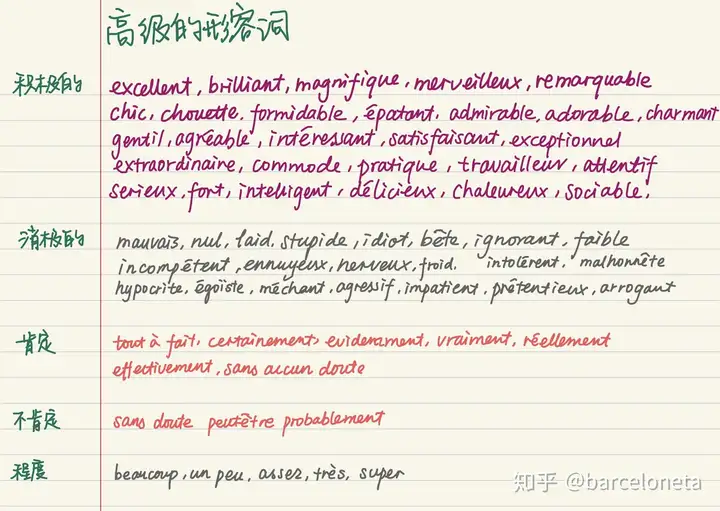 高级的形容词
积极的
excellent, brilliant, magnifique, merveilleux, remarquable
chic, chouette. formidable, épatant. admirable, adorable, charmant
gentil, agréable, intéressant, satisfaisant, exceptionnel
extraordinaire, commode, pratique, travailleur, attentif
serieux, fort, intelligent, délicieux, chaleureux, sociable,
消极的
mauvais, nul, laid. stupide, idiot, bête, ignorant, faible
incompétent, ennuyeux, nerveux, froid. intolérent. malhonnête
hypocrite, égoïste, méchant, agressif, impatient. prétentieux, arrogant
肯定
tout à fait, certainement, eviderament, vraiment, réellement
effectivement, sans aucun doute
不肯定
sans doute peutêtre probablement
程度
beaucoup, un peu, assez, très, super
知乎 @barceloneta